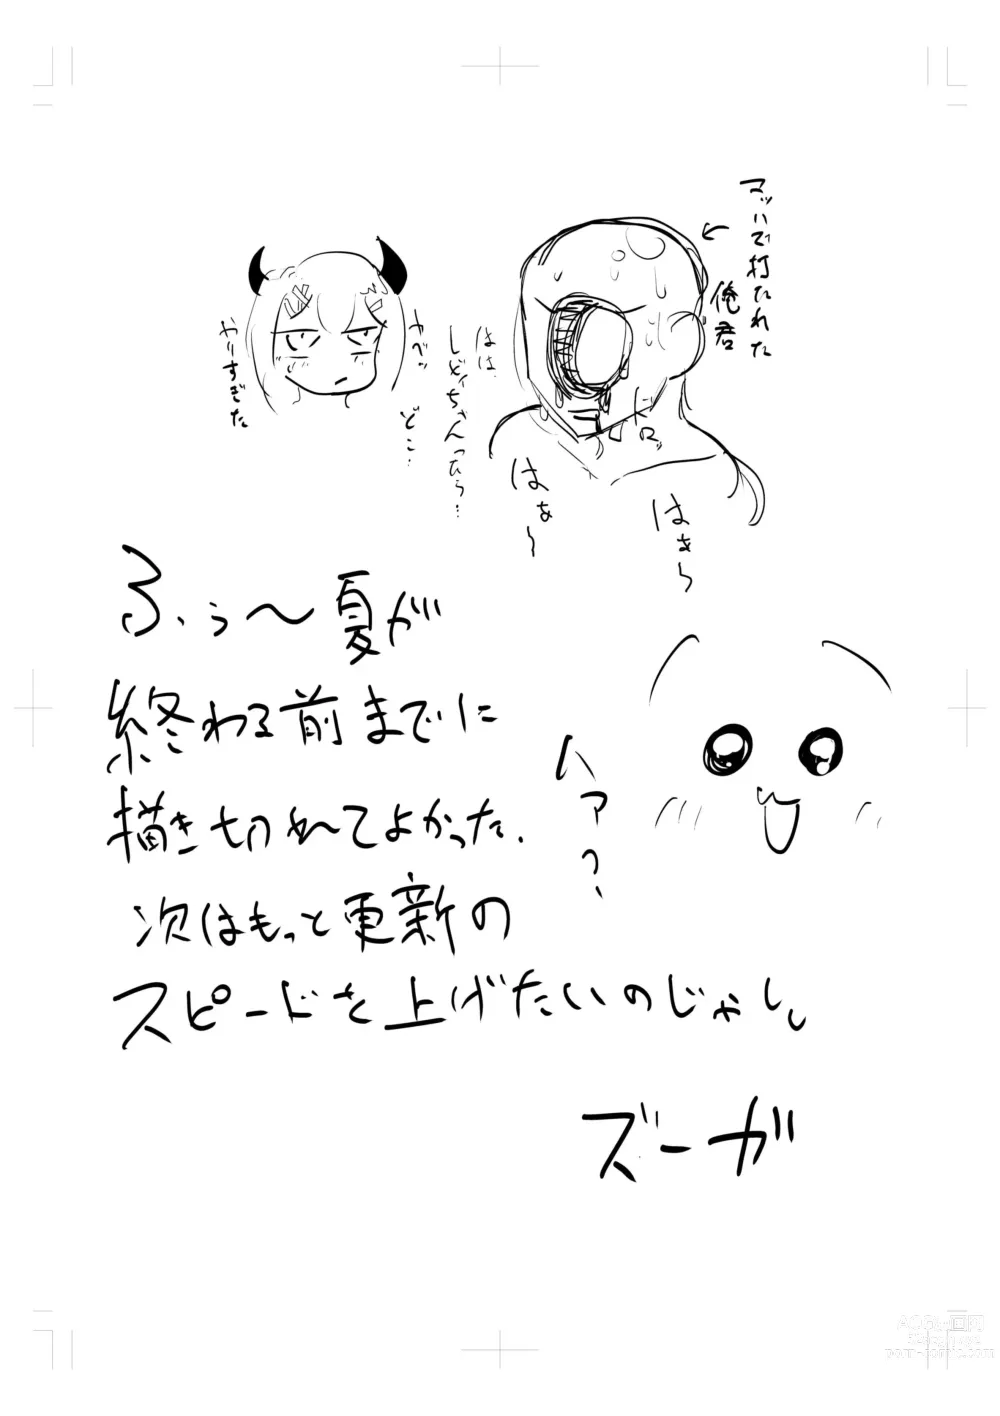 マッハで打たれた
俺君
はは、
しどいちゃんったら…
どこ…
ヤベッ
やりすぎた
ドロッ
はぁ～
はぁ～
ふぅ～夏が
終わる前までに
描き切れてよかった、
次はもっと更新の
スピードを上げたいのじゃし。
ハァ?
ズーガ
porn-comic.com